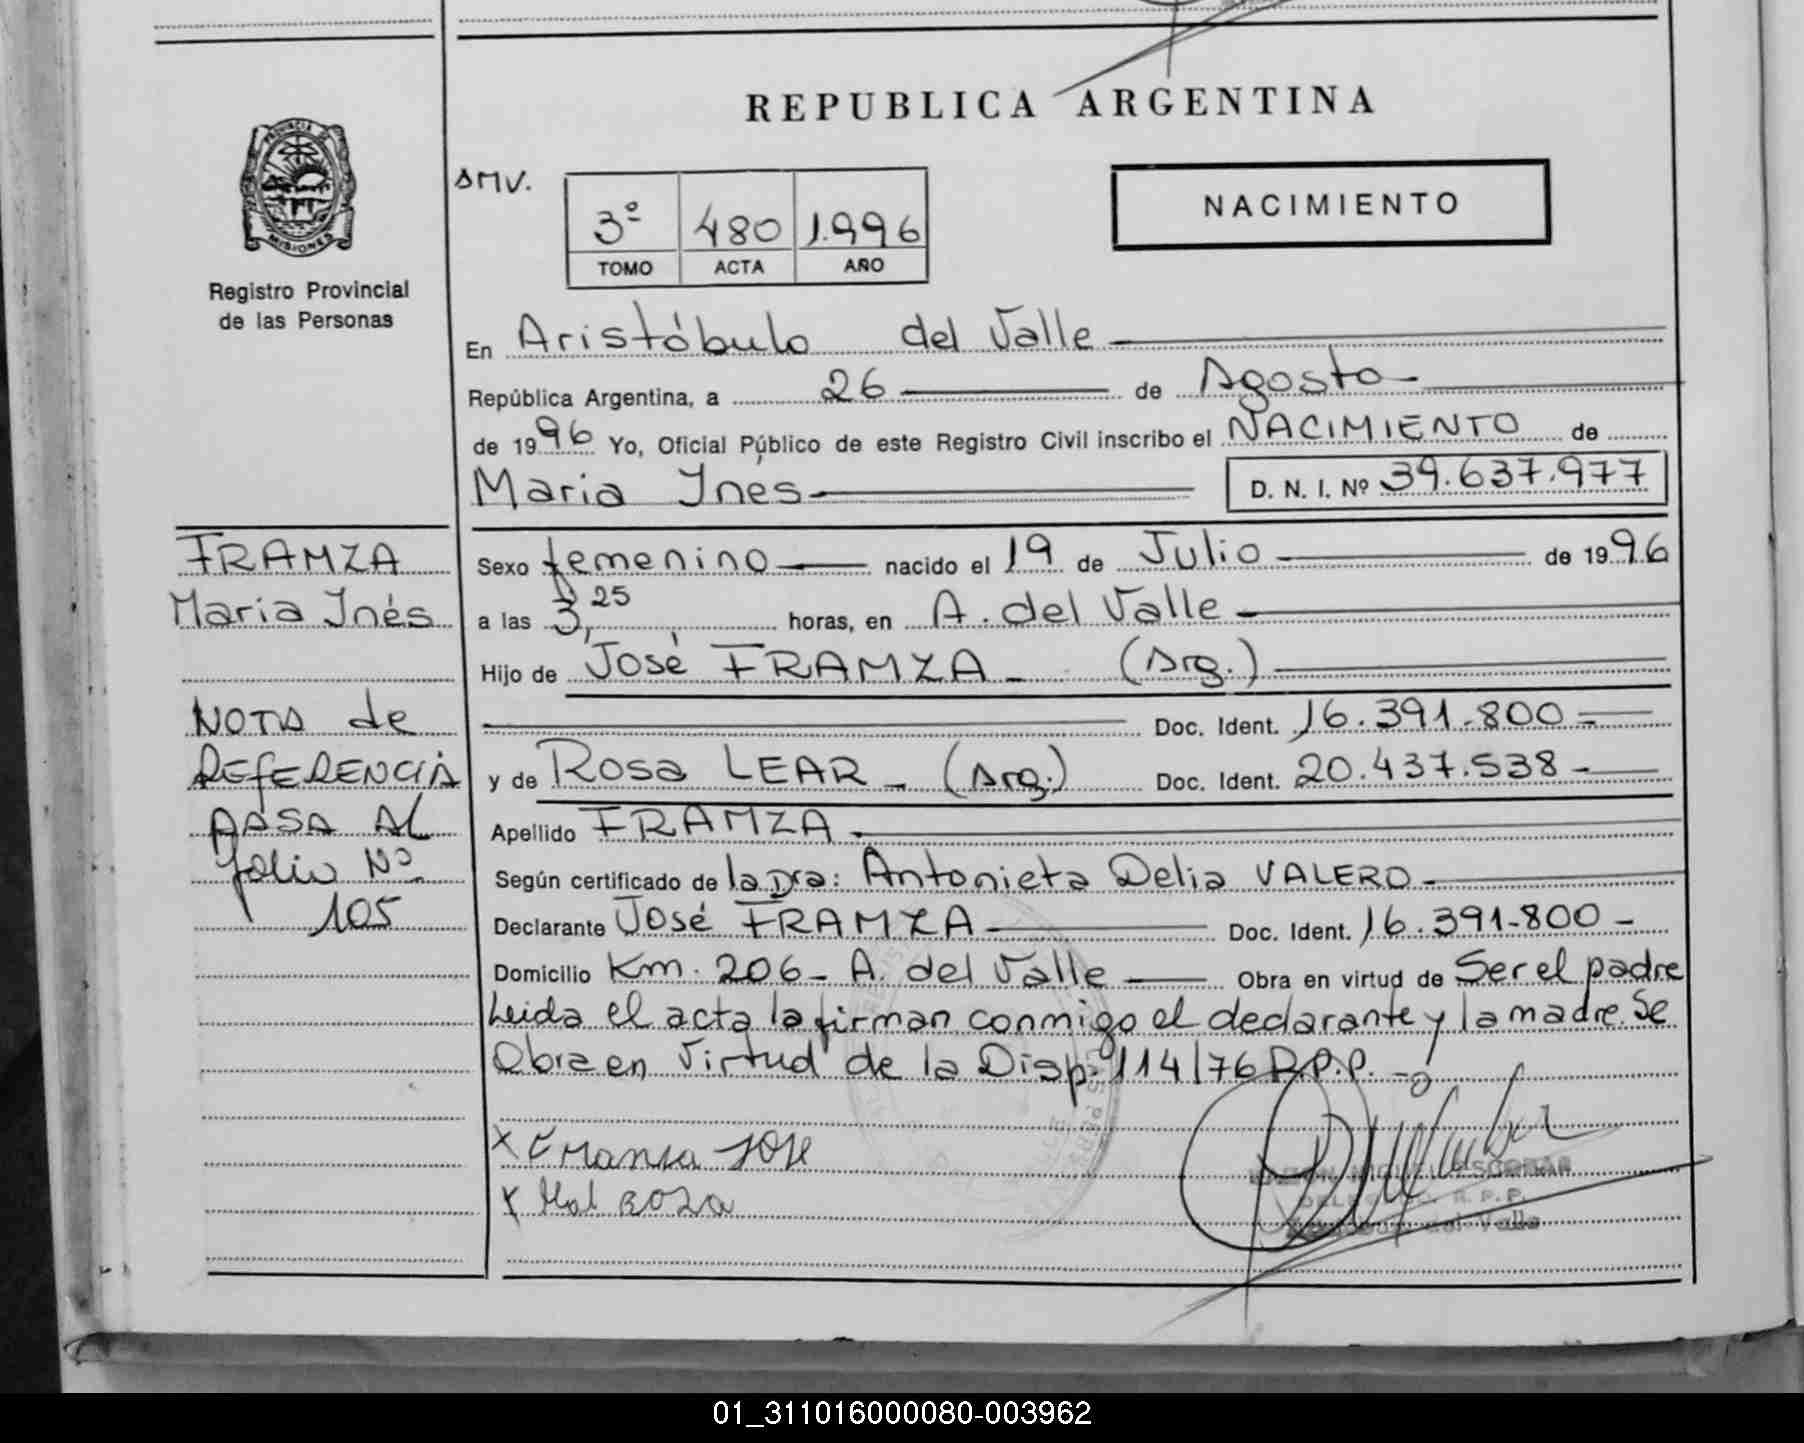 REPUBLICA ARGENTINA
PROVINCIA DE
MISIONES
Registro Provincial
de las Personas
AMV.
3º 480 1.996
TOMO ACTA AÑO
NACIMIENTO
En Aristóbulo del Valle
República Argentina, a 26 de Agosto
de 1996 Yo, Oficial Público de este Registro Civil inscribo el NACIMIENTO de
Maria Ines D. N. I. Nº 39.637.977
FRAMZA
Maria Inés
NOTA de
REFERENCIA
PASA AL
folio Nº
105
Sexo femenino nacido el 19 de Julio de 1996
a las 3,25 horas, en A. del Valle
Hijo de José FRAMZA (Arg.)
Doc. Ident. 16.391.800
y de Rosa LEAR (Arg.) Doc. Ident. 20.437.538
Apellido FRAMZA
Según certificado de la Dra: Antonieta Delia VALERO
Declarante José FRAMZA Doc. Ident. 16.391-800
Domicilio Km. 206 A. del Valle Obra en virtud de Ser el padre
Leida el acta la firman conmigo el declarante y la madre. Se
Obra en virtud de la Disp. 114/76 R.P.P.
X Framsa JOSE
X rosa
MIGUEL ESCOBAR
R. P. P.
del Valle
01_311016000080-003962